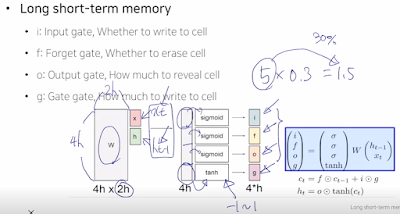 • Long short-term memory
• i: Input gate, Whether to write to cell
• f: Forget gate, Whether to erase cell
• o: Output gate, How much to reveal cell
• g: Gate gate, How much to write to cell
30%
5 × 0.3 = 1.5
2h
4h
W
x
h
xt
ht-1
sigmoid
sigmoid
sigmoid
tanh
i
f
o
g
4h x 2h
4h
4*h
-1~1
(i f o g) = (σ σ σ tanh) W (h_{t-1} x_t)
c_t = f ⊙ c_{t-1} + i ⊙ g
h_t = o ⊙ tanh(c_t)
Long short-term memory